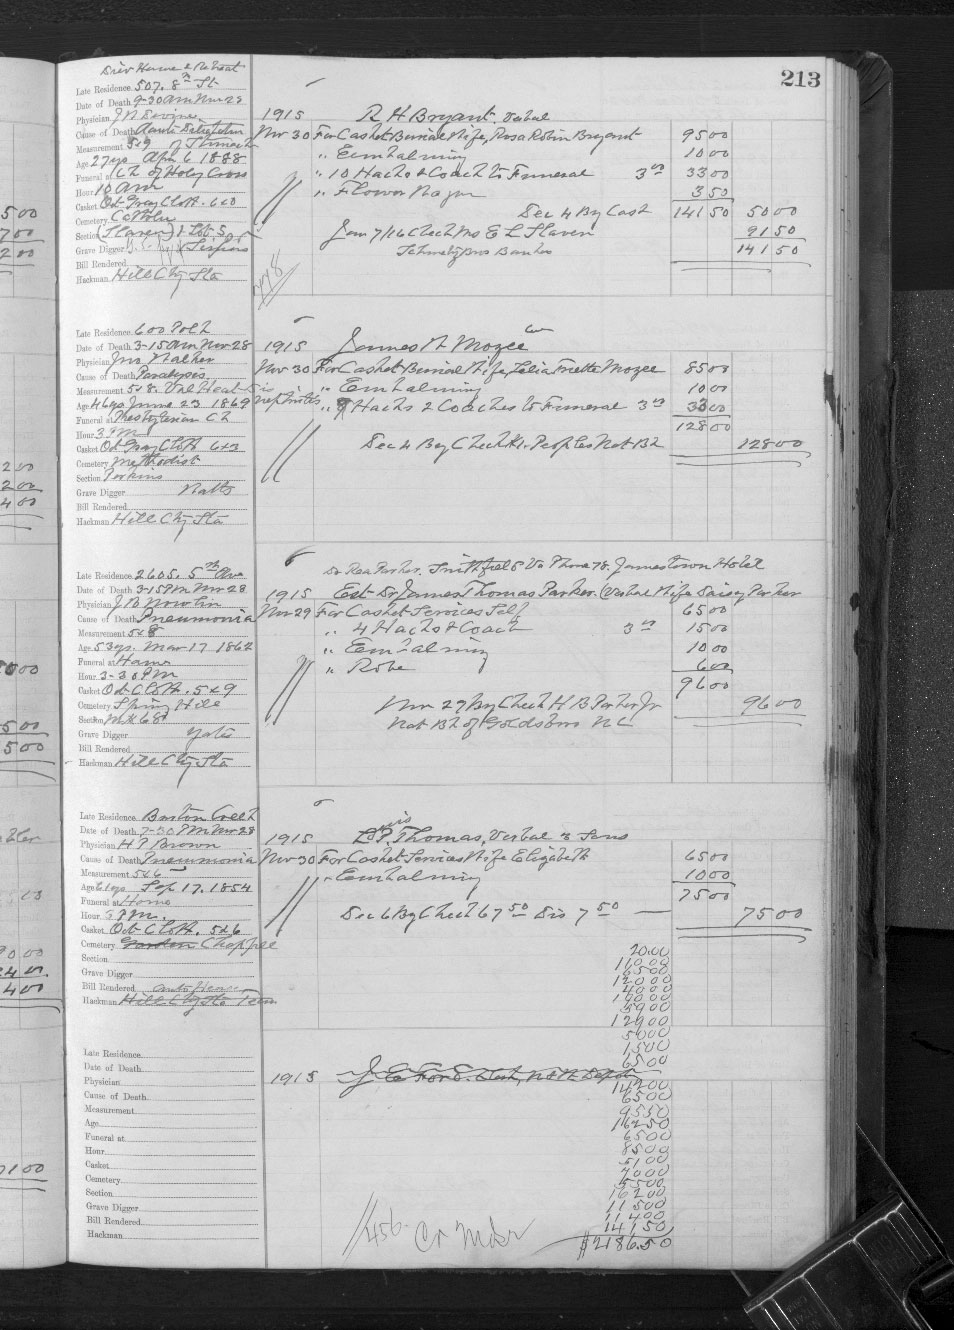 213
Late Residence 507. 8th St
Date of Death 9-30 am Nov 28
Physician
Cause of Death
Measurement 5x9 of Stomach
Age 27 yrs Apr 6 1888
Funeral at Ch of Holy Cross
Hour 10 am
Casket Oct Gray Cloth. 6x0
Cemetery Catholic
Section
Grave Digger
Bill Rendered
Hackman Hill City Sta
1915 R H Bryant. Verbal
Nov 30 For Casket Burial Wife, Rosa Robin Bryant 95 00
" Embalming 10 00
" 10 Hacks & Coach to Funeral 3.00 33 00
" Flower Wagon 3 50
Dec 4 By Cash 141 50 50 00
Jan 7/16 Check Mrs E L Slaven 91 50
Bros Bankers 141 50
Late Residence 600 Polk
Date of Death 3-15 am Nov 28
Physician Jno Walker
Cause of Death Paralysis
Measurement 5x8. Val Heart Dis
Age 46 yrs June 23 1869 nephritis
Funeral at Presbyterian Ch
Hour 3 PM
Casket Oct Gray Cloth 6x3
Cemetery Methodist
Section Perkins
Grave Digger Watts
Bill Rendered
Hackman Hill City Sta
1915 James W Mozee
Nov 30 For Casket Burial Wife, Lelia Friette Mozee 85 00
" Embalming 10 00
" 9 Hacks 2 Coaches to Funeral 3.00 33 00
128 00
Dec 4 By Check Peoples Nat Bk 128 00
Late Residence 2605. 5th Ave
Date of Death 3-15 PM Nov 28
Physician J B Nowlin
Cause of Death Pneumonia
Measurement 5x8
Age 53 yrs. Mar 17 1862
Funeral at Home
Hour 3-30 PM
Casket Oct Cloth. 5x9
Cemetery Spring Hill
Section
Grave Digger Yates
Bill Rendered
Hackman Hill City Sta
Dr Rea Parker. Smithfield Va Phone 78. Jamestown Hotel
1915 Est Dr James Thomas Parker. (Verbal Wife Daisey Parker
Nov 29 For Casket Services Self 65 00
" 4 Hacks & Coach 3.00 15 00
" Embalming 10 00
" Robe 6 00
96 00
Nov 29 By Check H B Parker Jr 96 00
Nat Bk of Goldsboro N C
Late Residence Burton Creek
Date of Death 7-30 PM Nov 28
Physician H T Brown
Cause of Death Pneumonia
Measurement 5x6
Age 61 yrs Sep 17. 1854
Funeral at Home
Hour PM.
Casket Oct Cloth. 5x6
Cemetery Garden Chappel
Section
Grave Digger
Bill Rendered Auto Hearse
Hackman Hill City Sta Team
1915 L P. Thomas, Verbal & Sons
Nov 30 For Casket Services Wife Elizabeth 65 00
" Embalming 10 00
75 00
Dec 6 By Check 67 50 Dis 7 50 — 75 00
20.00
110 00
65 00
120 00
40 00
190 00
59 00
129 00
50 00
15 00
65 00
Late Residence
Date of Death
Physician
Cause of Death
Measurement
Age
Funeral at
Hour
Casket
Cemetery
Section
Grave Digger
Bill Rendered
Hackman
1915 J E Ford. Clerk, N&W Depot
142 00
65 00
95 50
162 50
65 00
85 00
51 00
40 00
55 00
162 00
115 00
114 00
141 50
$2186.50